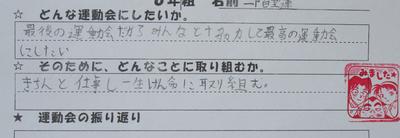 ６年組 名前
☆ どんな運動会にしたいか。
最後の運動会だからみんなと協力して最高の運動会
にしたい
☆ そのために、どんなことに取り組むか。
きちんと仕事し一生けん命に取り組む。
みました
★ 運動会の振り返り